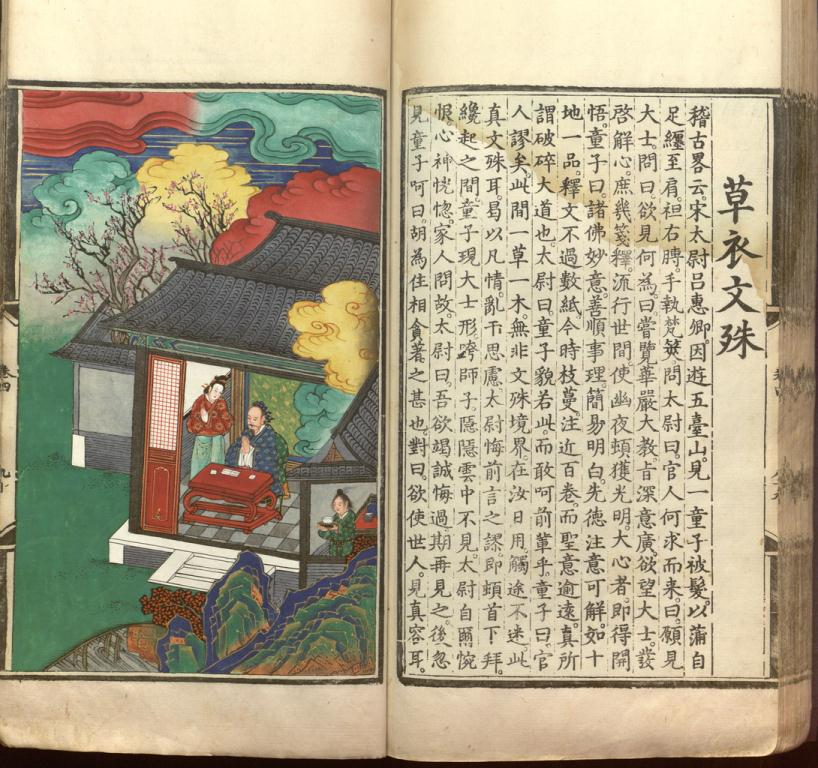 草衣文殊
稽古畧云。宋太尉呂惠卿。因遊五臺山。見一童子被髮。以蒲自
足纏至肩。袒右膊。手執梵筴。問太尉曰。官人何求而來。曰。願見
大士。問曰。欲見何為。曰。嘗覽華嚴大教。旨深意廣。欲望大士。發
啓解心。庶幾箋釋。流行世間。使幽夜頓獲光明。大心者即得開
悟。童子曰。諸佛妙意。善順事理。簡易明白。先德注意可解。如十
地一品。釋文不過數紙。今時枝蔓。注近百卷。而聖意逾遠。真所
謂破碎大道也。太尉曰。童子貌若此。而敢呵前輩乎。童子曰。官
人謬矣。此間一草一木。無非文殊境界。在汝日用。觸途不迷。此
真文殊耳。曷以凡情。亂干思慮。太尉悔前言之謬。即頓首下拜。
纔起之間。童子現大士形。跨師子。隱隱雲中不見。太尉自爾惋
恨。心神恍惚。家人問故。太尉曰。吾欲竭誠悔過。期再見之。後忽
見童子呵曰。胡為住相貪著之甚也。對曰。欲使世人。見真容耳。
卷四